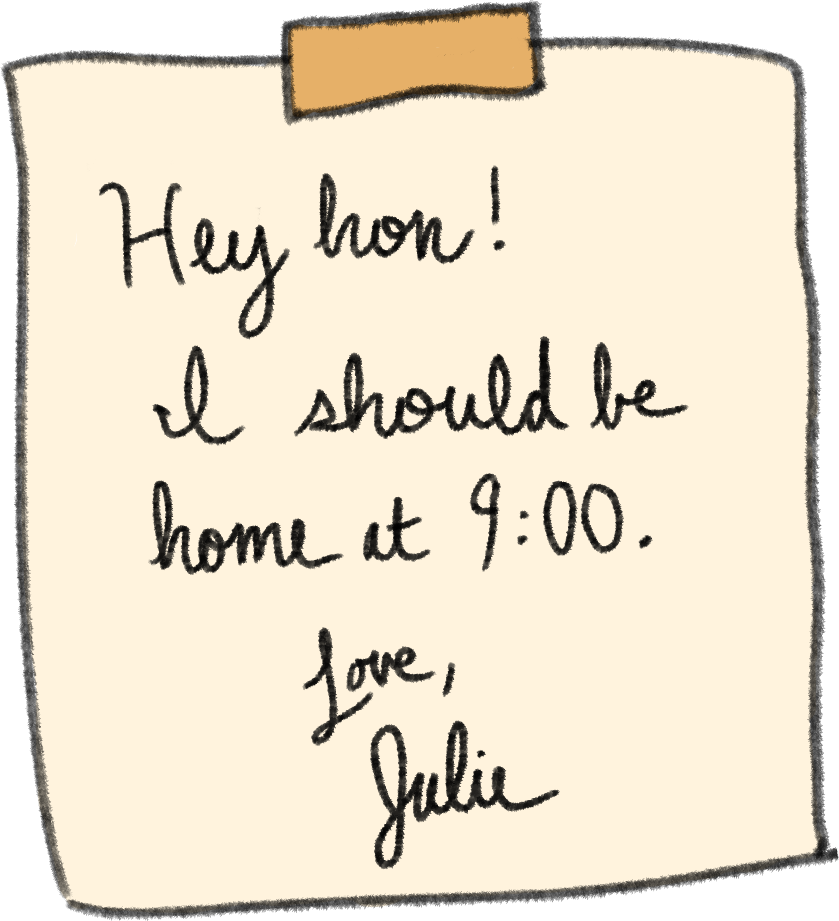 Hey hon!
I should be
home at 9:00.
Love,
Julie